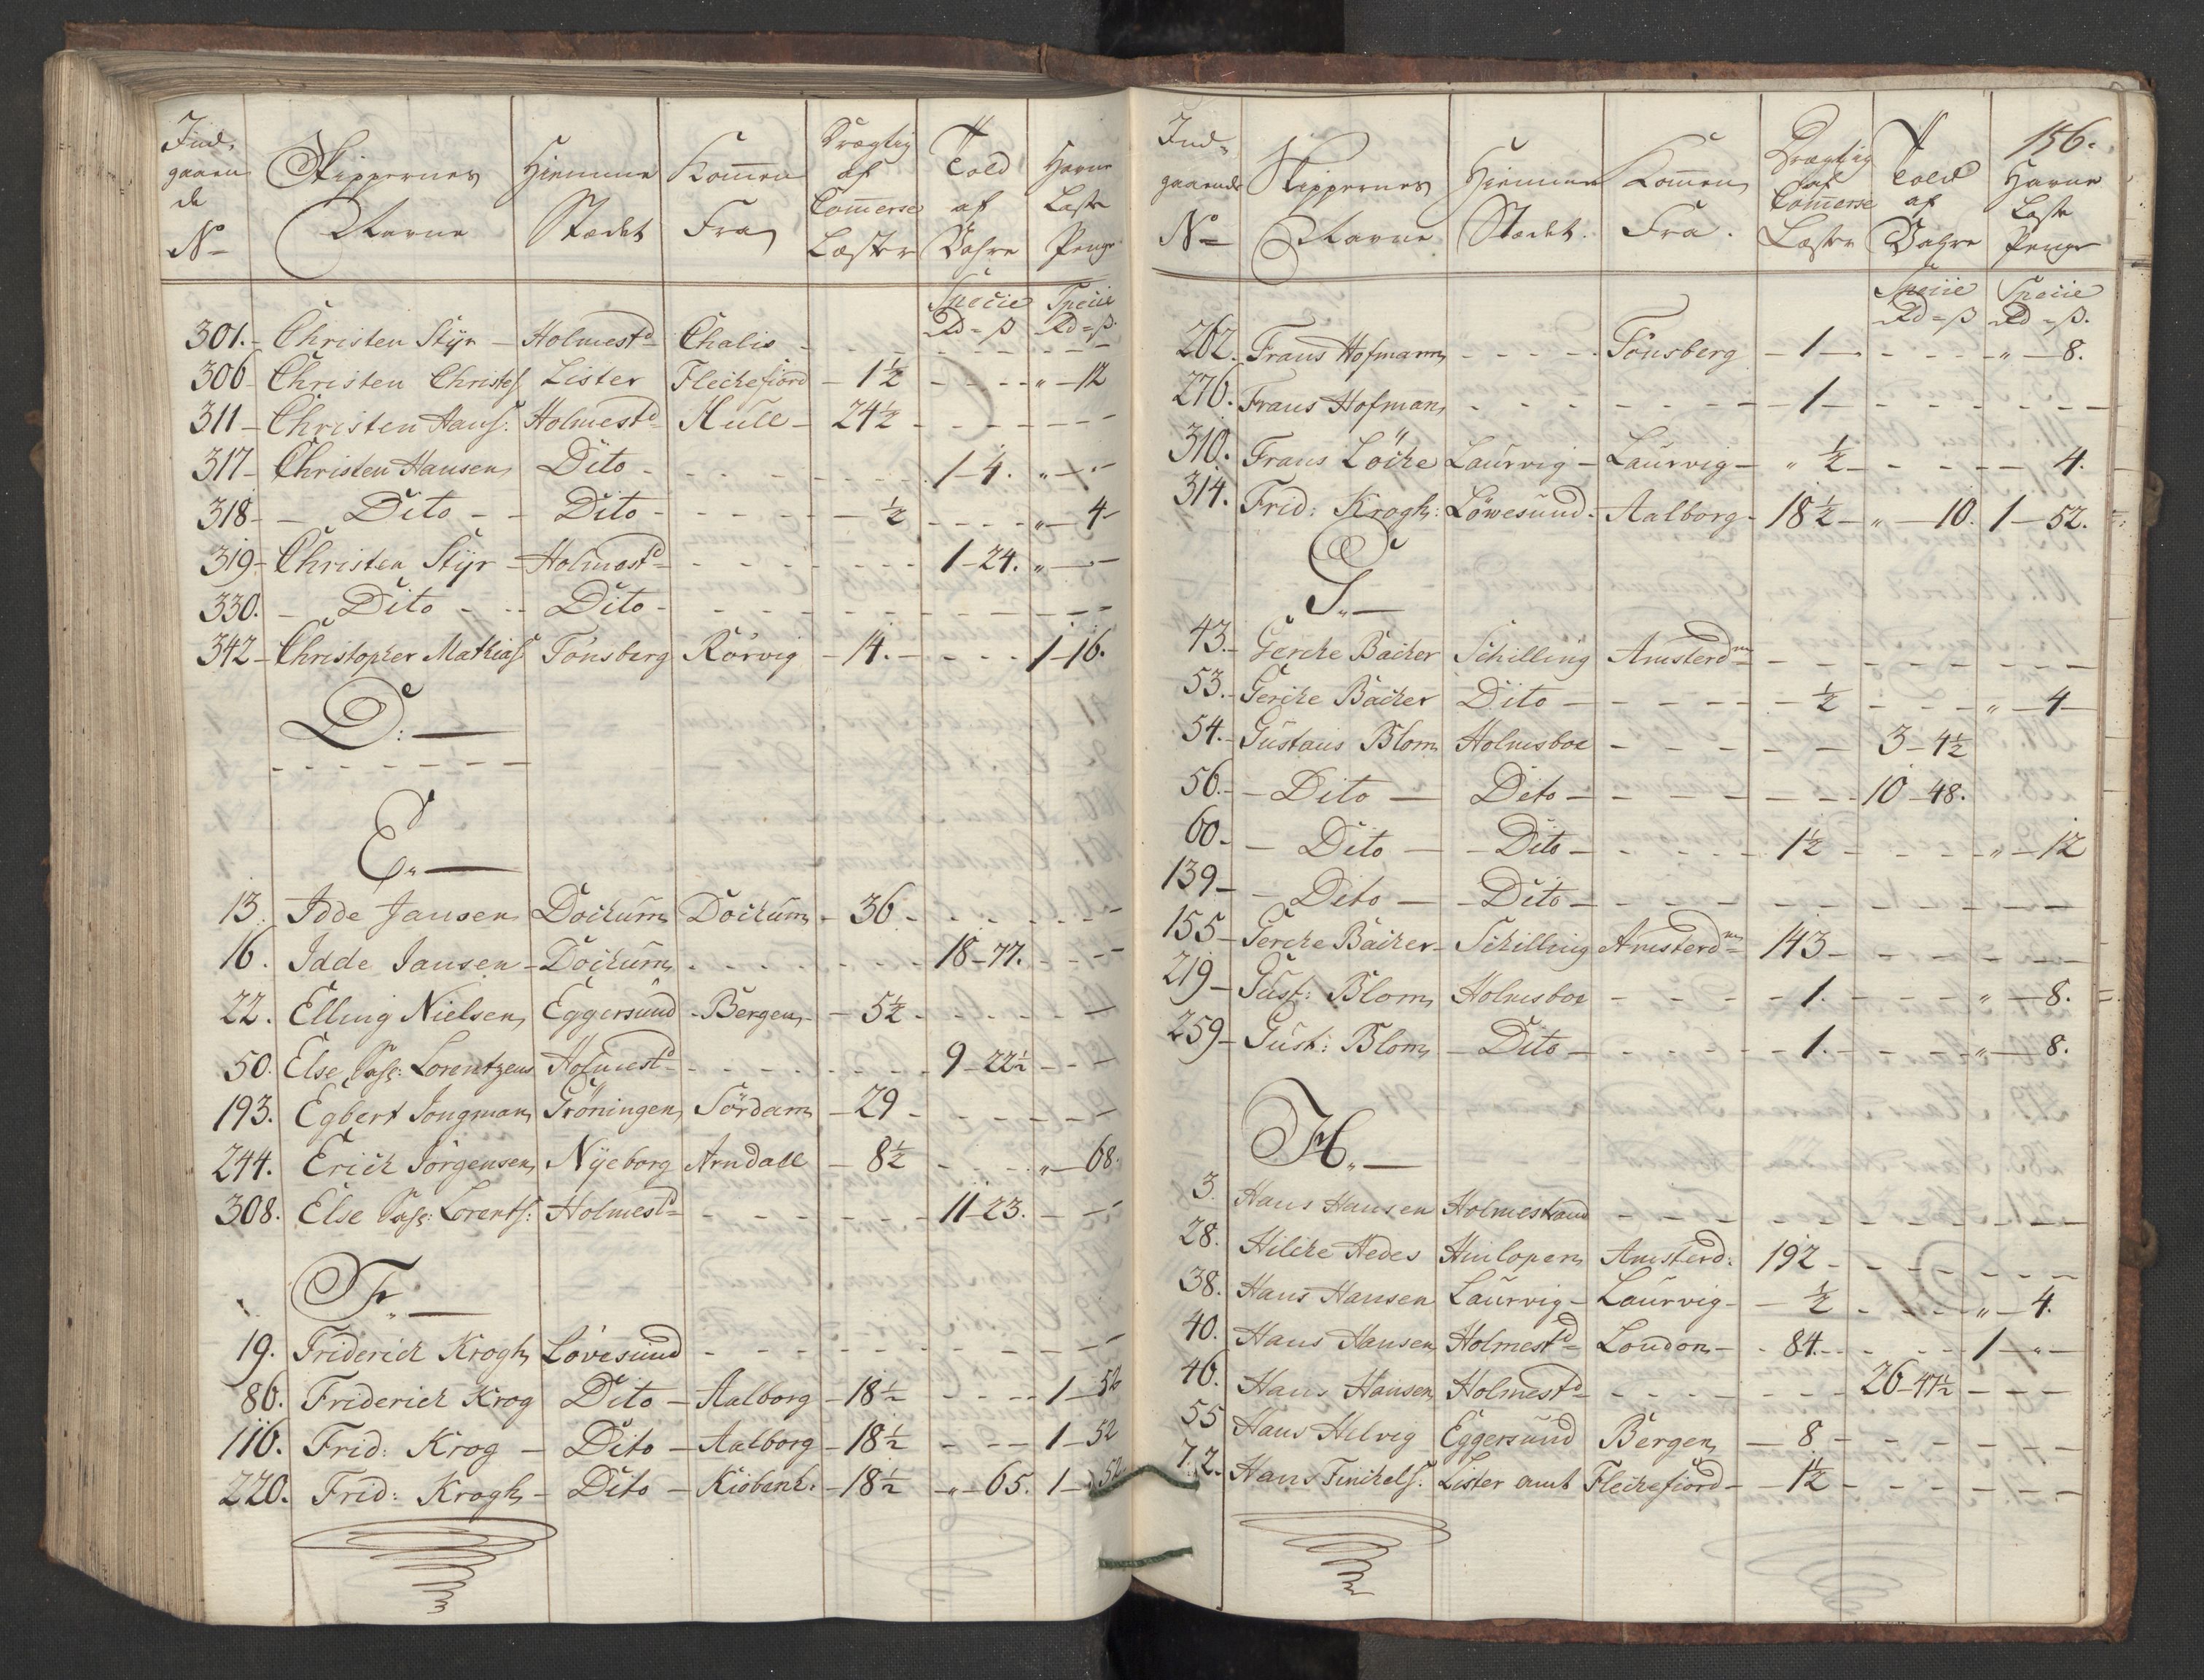 Ind- gaaen de No | Skippernes Navne | Hiemme Stædet | Kommen Fra | Drægtig af Commerse Læster | Told af Vahre | Havne Læste Penge
Specie Rd = ß | Specie Rd = ß
301. Christen Stÿr Holmestd Chalis
306 Christen Christes Lister Fleckefiord 1½ " 12
311 Christen Hans: Holmestd Hull 24½
317 Christen Hansen Dito 1 4. "
318 Dito Dito ½ " 4
319 Christen Stÿr Holmestd 1 24. "
330. Dito Dito
342 Christopher Mathias Tönsberg Rörvig 14. 1 16.
D.
E.
13. Idde Jansen Dockum Dockum 36
16. Idde Jansen Dockum 18 77.
22. Elling Nielsen Eggersund Bergen 5½
50. Else Lorentzens Holmestd 9 22½
193. Egbert Jongman Gröningen Sördam 29
244. Erich Jörgensen Nÿeborg Arndall 8½ " 68.
308. Else Lorents: Holmestd 11 23.
F.
19. Friderich Krogh Lövesund
86. Friderich Krog Dito Aalborg 18½ 1 52
116. Frid: Krog Dito Aalborg 18½ 1 52
220. Frid: Krogh Dito Kiöbenh: 18½ " 65. 1 52
156.
Ind- gaaende No | Skippernes Navne | Hiemme Stædet. | Kommen Fra. | Drægtig af Commerse Læster | Told af Vahre | Havne Læste Penge
Specie Rd = ß | Specie Rd = ß.
262. Frans Hofmann Tönsberg 1 " 8.
276. Frans Hofman 1
310. Frans Löcke Laurvig Laurvig " ½ 4.
314. Frid: Krogh: Löwesund Aalborg 18½ " 10. 1 52.
G.
43. Gercke Backer Schilling Amsterdm
53. Gercke Backer Dito ½ " 4
54. Gustaus Blom Holmsboe 3 4½
56. Dito Dito 10 48.
60. Dito Dito 1½ " 12
139 Dito Dito
155 Gercke Backer Schilling Amsterdm 143
219 Gust: Blom Holmsboe 1. " 8.
259 Gust: Blom Dito 1. " 8.
H.
3. Hans Hansen Holmestrand
28. Hilcke Hedes Hinlopen Amsterd: 192
38. Hans Hansen Laurvig Laurvig ½ " 4.
40. Hans Hansen Holmestd London 84. 1 "
46. Hans Hansen Holmestd 26 47½
55 Hans Helvig Eggersund Bergen 8
72. Hans Finckels: Lister amt Fleckefiord 1½